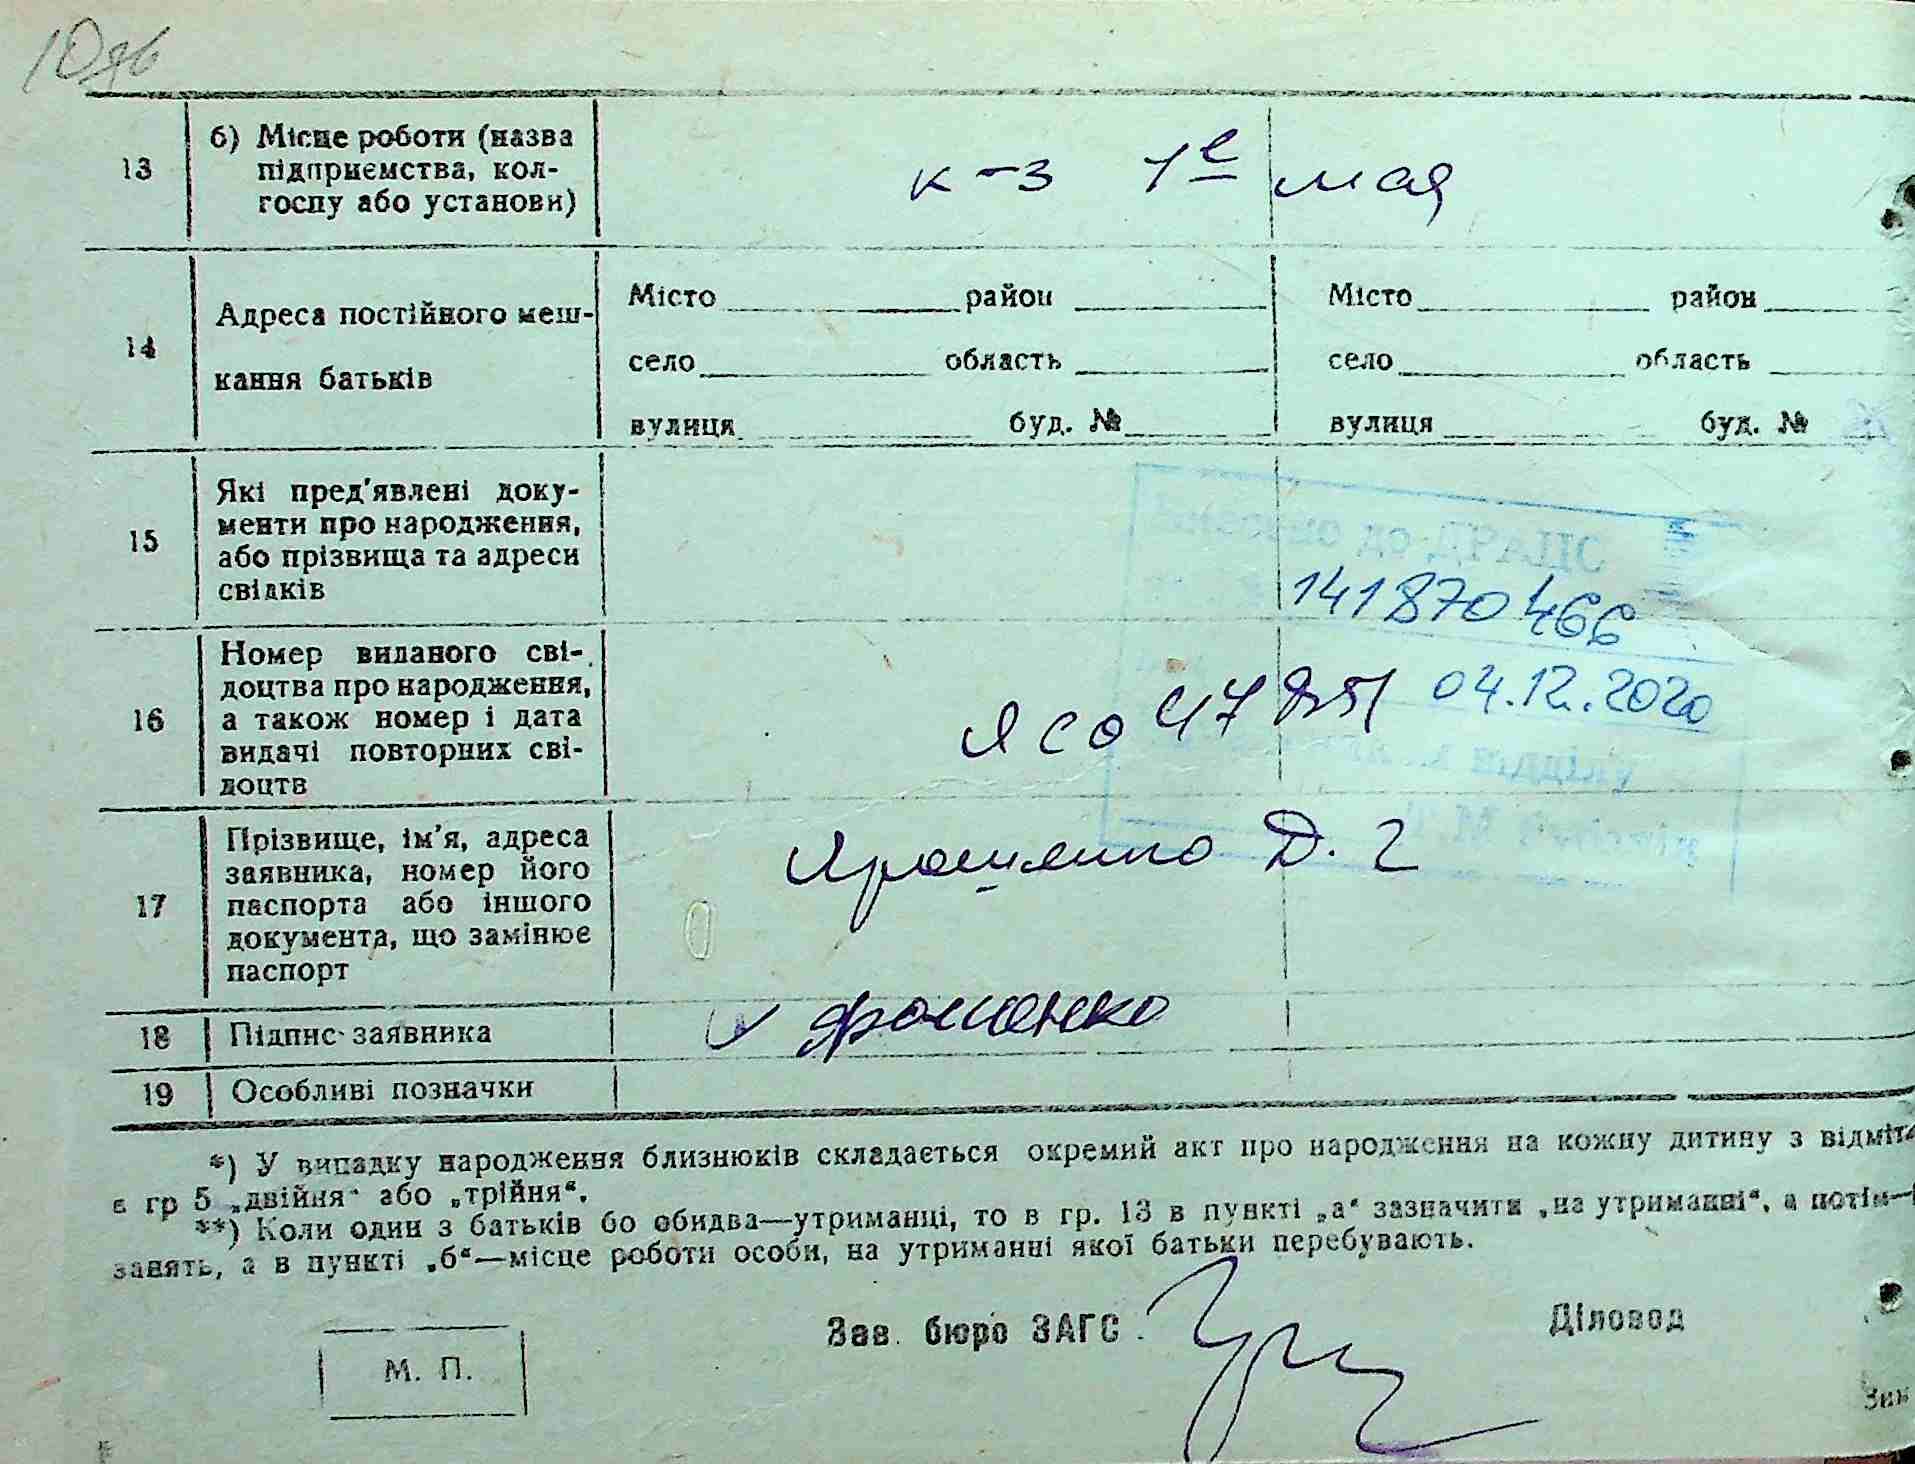 13
б) Місце роботи (назва
підприємства, кол-
госпу або установи)
к-з 1е мая
14
Адреса постійного меш-
кання батьків
Місто район
село область
вулиця буд. №
Місто район
село область
вулиця буд. №
15
Які пред'явлені доку-
менти про народження,
або прізвища та адреси
свідків
Внесено до ДРАЦС
141870466
04.12.2020
16
Номер виданого сві-
доцтва про народження,
а також номер і дата
видачі повторних сві-
доцтв
17
Прізвище, ім'я, адреса
заявника, номер його
паспорта або іншого
документа, що замінює
паспорт
Д. Г
18
Підпис заявника
19
Особливі позначки
*) У випадку народження близнюків складається окремий акт про народження на кожну дитину з відміт
в гр 5 „двійня“ або „трійня“.
**) Коли один з батьків бо обидва—утриманці, то в гр. 13 в пункті „а“ зазначити „на утриманні“, а потім—
занять, а в пункті „б“—місце роботи особи, на утриманні якої батьки перебувають.
Зав. бюро ЗАГС
Діловод
М. П.